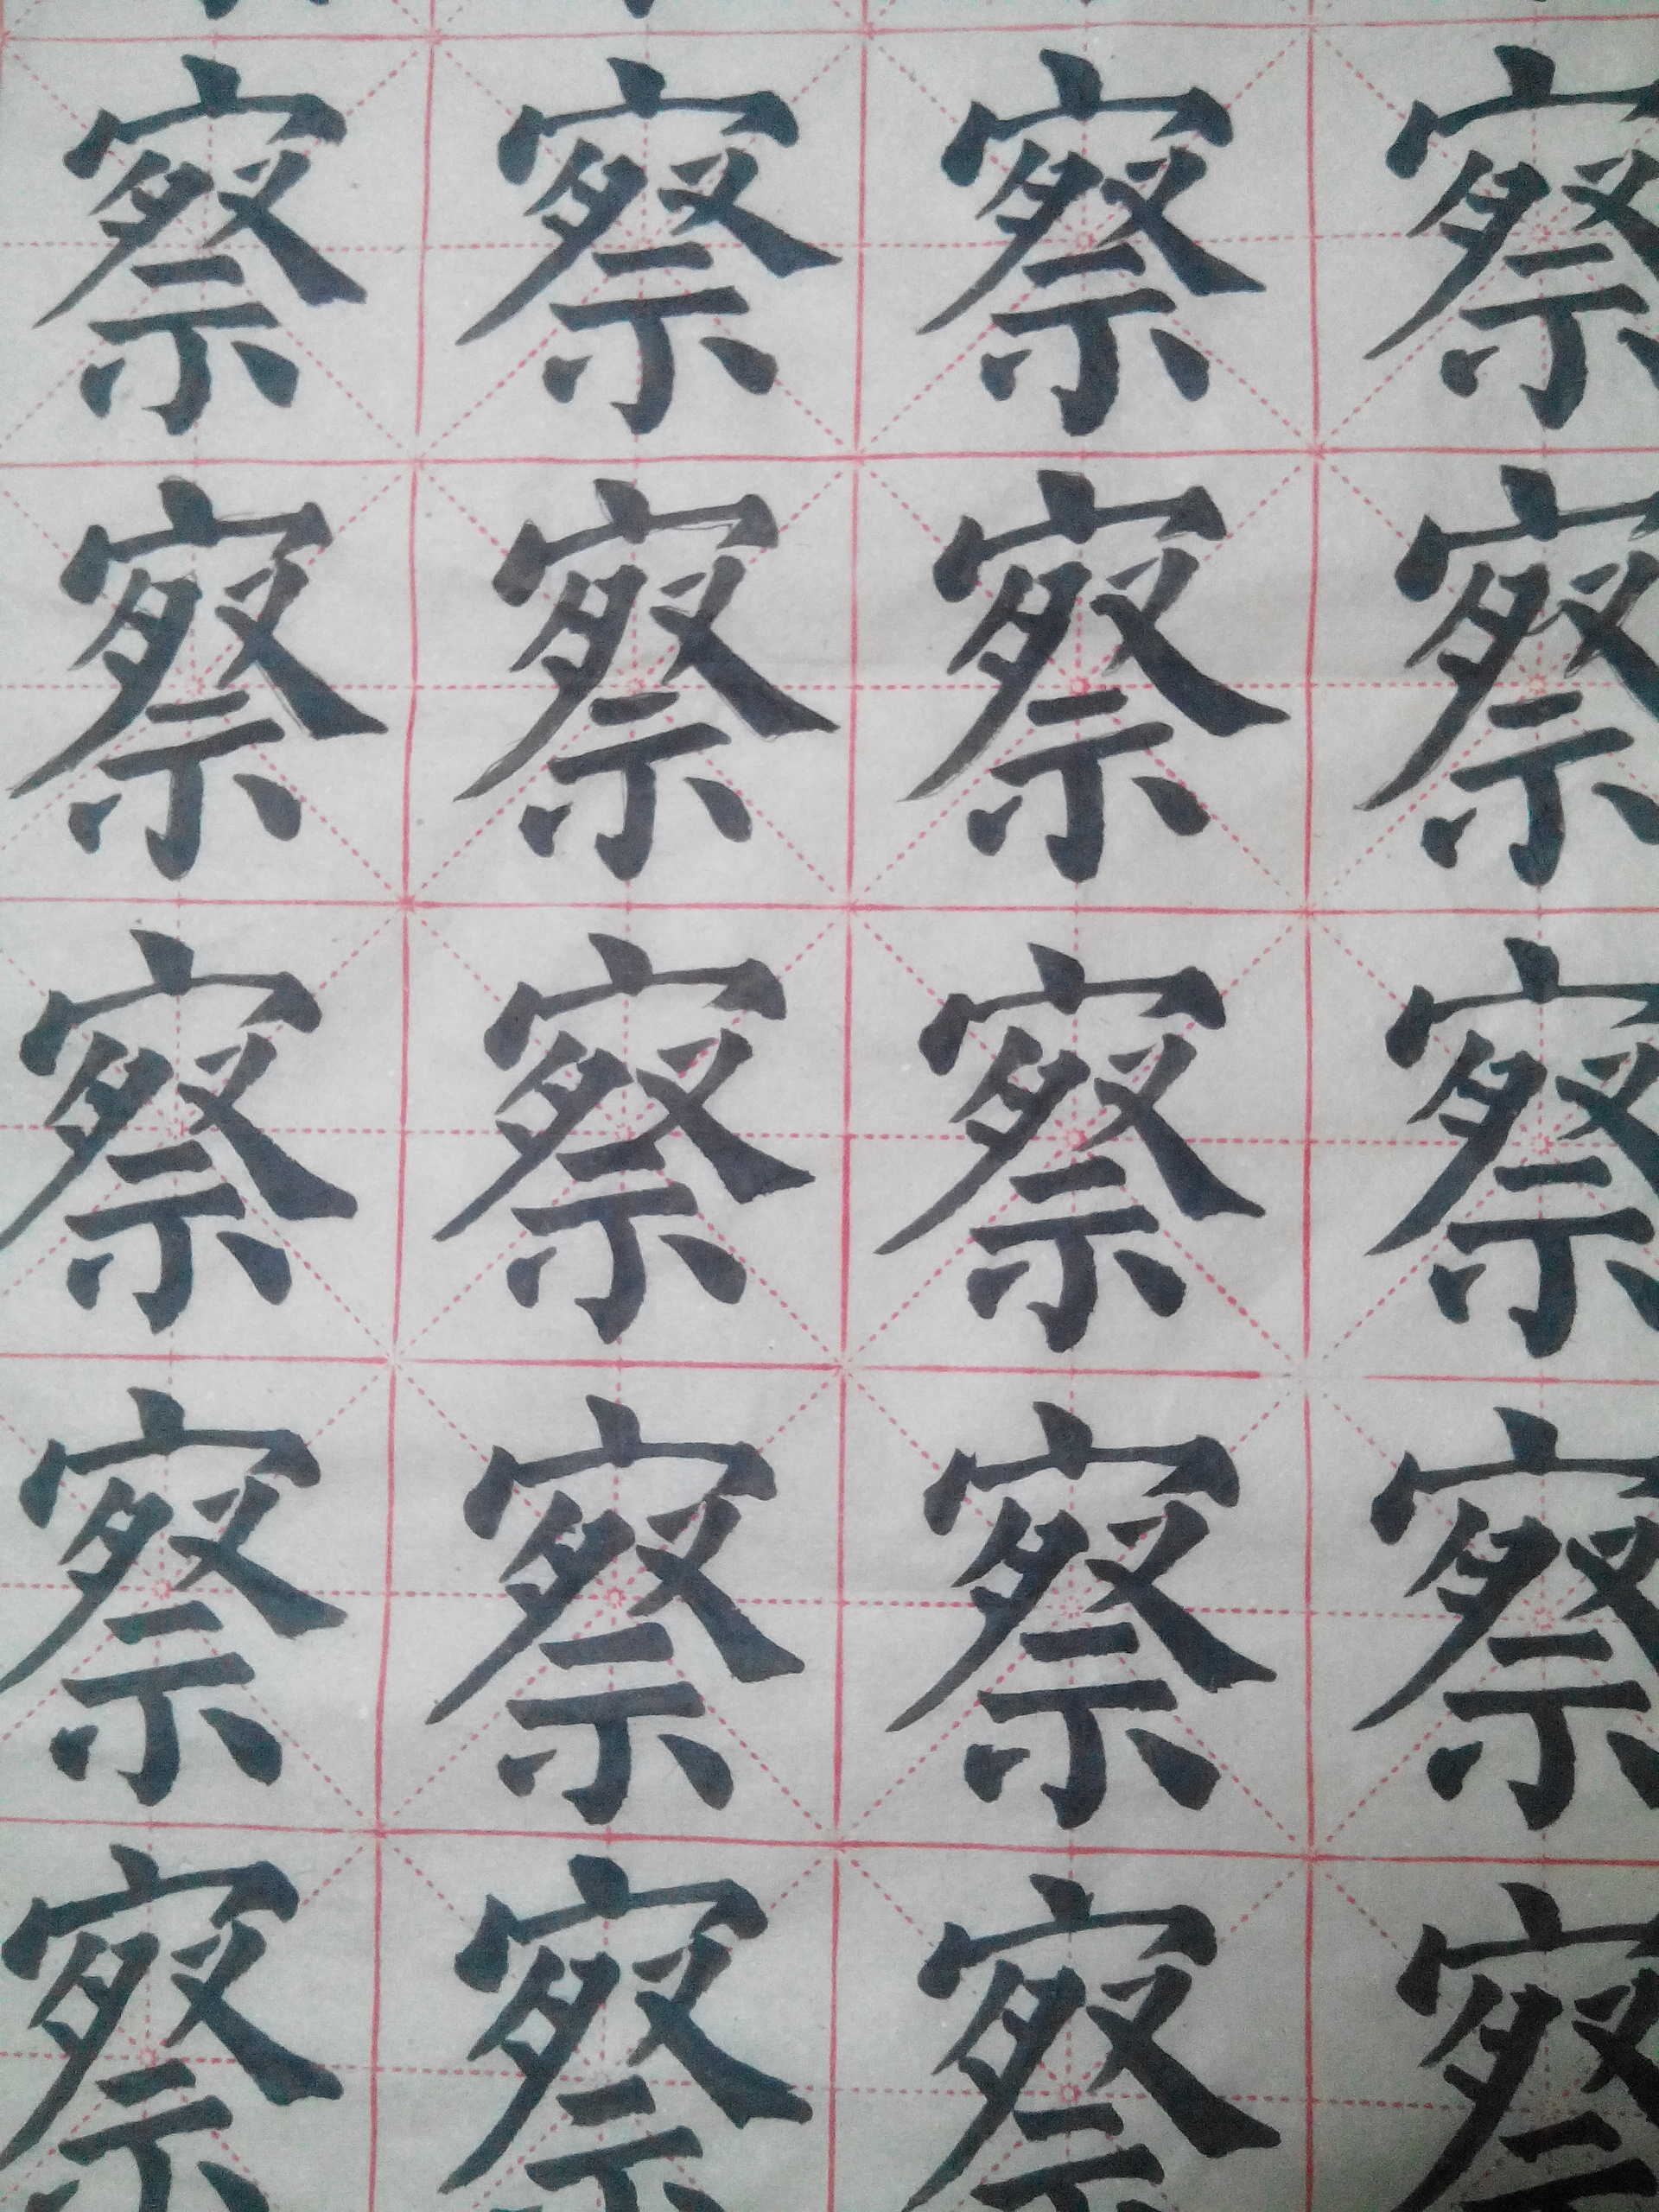 察察察察
察察察察
察察察察
察察察察
察察察察